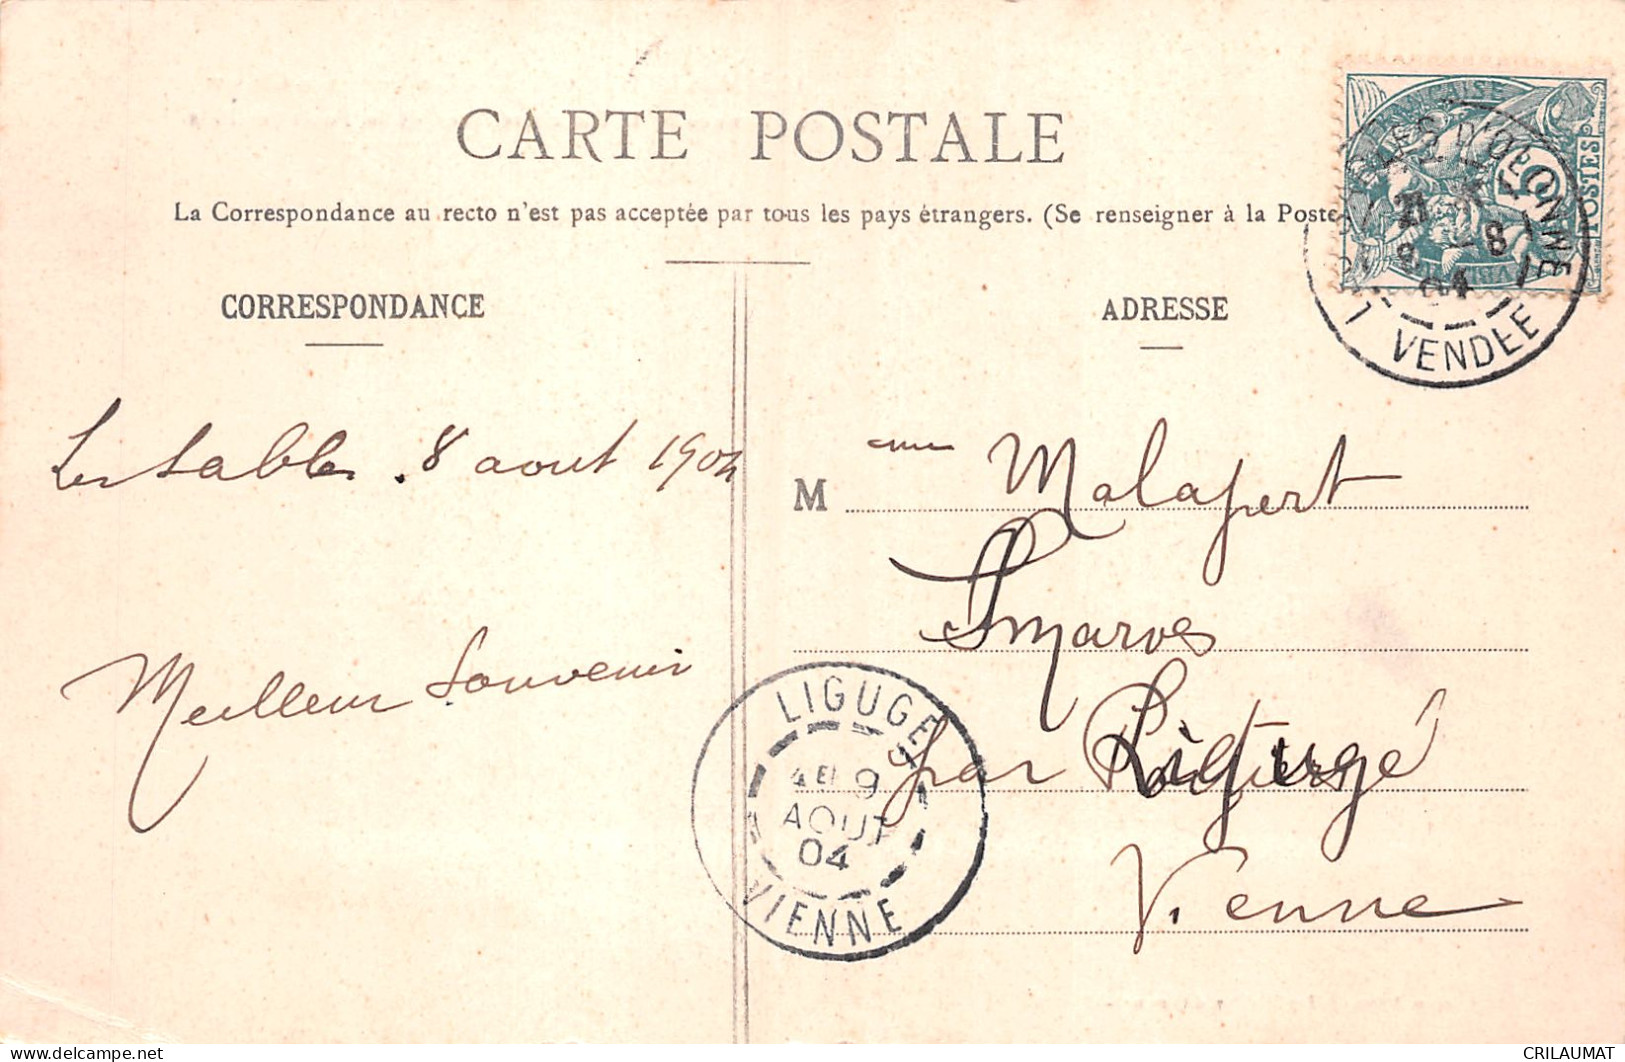 CARTE POSTALE
La Correspondance au recto n'est pas acceptée par tous les pays étrangers. (Se renseigner à la Poste
CORRESPONDANCE
ADRESSE
POSTES
VENDÉE
Les Sables . 8 aout 1904
M me Malapert
Smarves
par Ligugé
Vienne
Meilleur Souvenir
LIGUGE
9
AOUT
04
VIENNE
CRILAUMAT